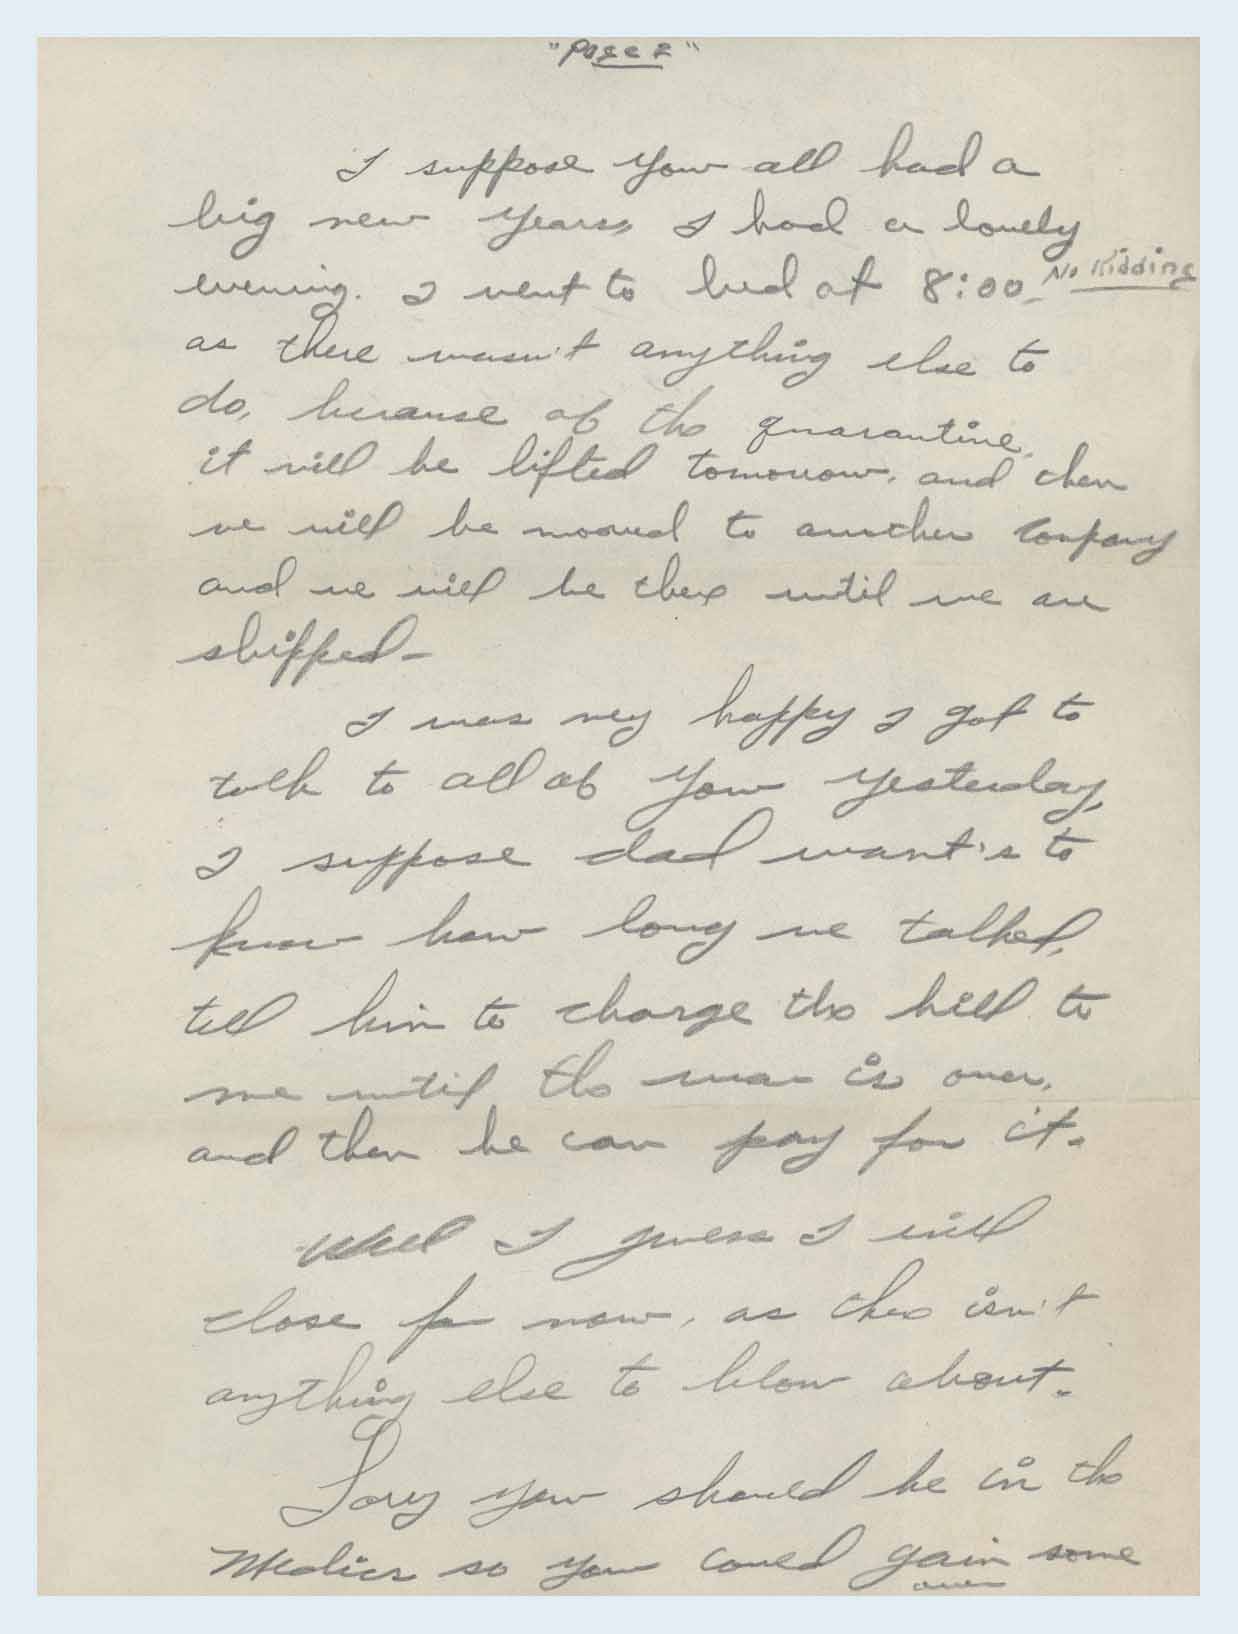 "Page 2"
I suppose you all had a
big new years, I had a lonely
evening. I went to bed at 8:00, No Kidding
as there wasn't anything else to
do, because of the quarantine,
it will be lifted tomorrow, and then
we will be mooved to another company
and we will be there until we are
shipped-
I was very happy I got to
talk to all of you yesterday,
I suppose dad want's to
know how long we talked,
tell him to charge the bill to
me until the war is over,
and then he can pay for it.
Well I guess I will
close for now, as there isn't
anything else to blow about.
you should be in the
Medics so you could gain some
over